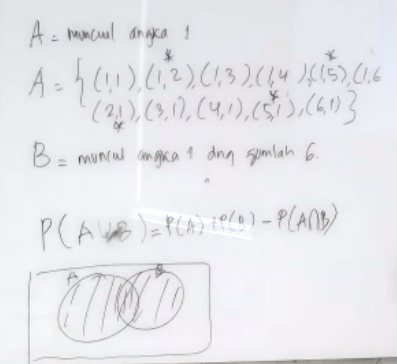 A = muncul angka 1
A = { (1,1), (1,2)*, (1,3), (1,4), (1,5)*, (1,6
(2,1)*, (3,1), (4,1), (5,1)*, (6,1) }
B = muncul angka 1 dng jumlah 6.
P(A∪B) = P(A) + P(B) - P(A∩B)
A B